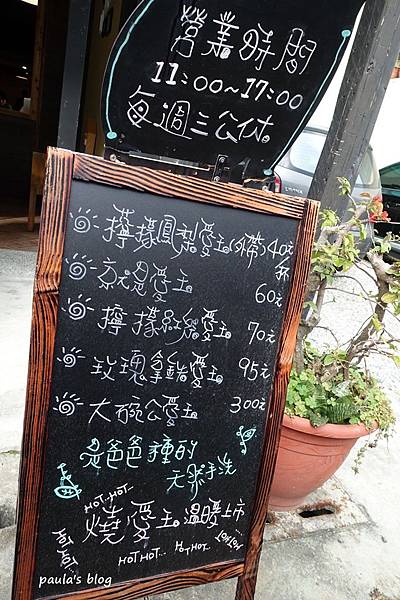 營業時間
11:00~17:00
每週三公休
檸檬鳳梨愛玉(外帶)40元
杯
60元
檸檬紅茶愛玉 70元
玫瑰拿鐵愛玉 95元
大碗公愛玉 300元
爸爸種的
天然手洗
HOT...HOT...
燒愛玉 溫暖上市
HOT HOT... HOT HOT...
paula's blog